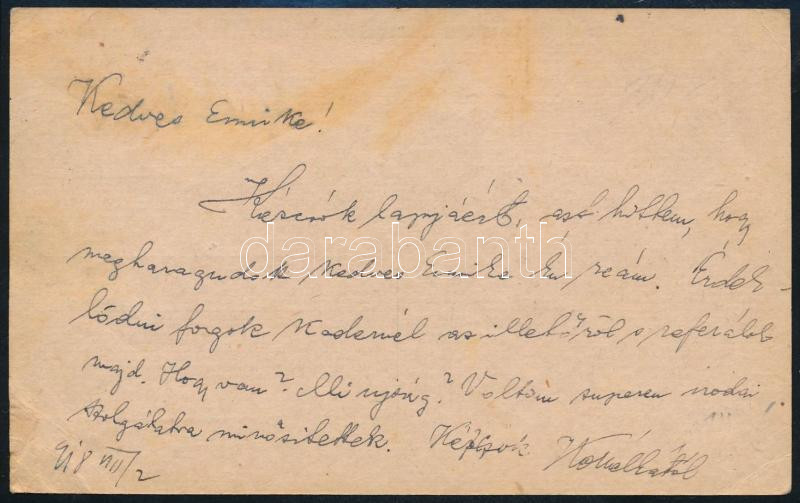 Kedves Emike!
Kézcsók lapjáért, azt hittem, hogy
megharagudott kedves Emike én reám. Érdek-
lődni fogok Kadernél az illetőről s referálok
majd. Hogy van? Mi újság? Voltam superen irodai
szolgálatra minősítettek. Kézcsók
918 VIII/2
darabanth